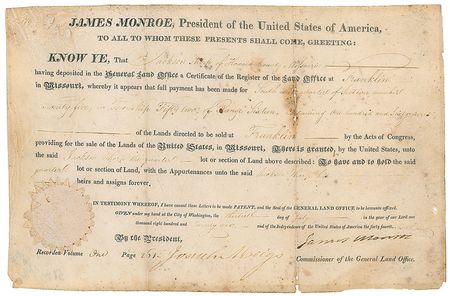 JAMES MONROE, President of the United States of America,
TO ALL TO WHOM THESE PRESENTS SHALL COME, GREETING:
KNOW YE, That Jackson of Howard County Missouri
having deposited in the General Land Office a Certificate of the Register of the Land Office at Franklin
in Missouri, whereby it appears that full payment has been made for quarter of Section number
twenty five, in Township Fifty two of Range Sixteen, containing one hundred and Sixty acres
of the Lands directed to be sold at Franklin by the Acts of Congress,
providing for the sale of the Lands of the United States, in Missouri, There is granted, by the United States, unto
the said quarter lot or section of Land above described: To have and to hold the said
quarter lot or section of Land, with the Appurtenances unto the said
heirs and assigns forever,
IN TESTIMONY WHEREOF, I have caused these Letters to be made PATENT, and the Seal of the GENERAL LAND OFFICE to be hereunto affixed.
GIVEN under my hand at the City of Washington, the day of in the year of our Lord one
thousand eight hundred and and of the Independence of the United States of America the forty fourth.
By the President, James Monroe
Recorded Volume One Page Josiah Meigs Commissioner of the General Land Office.